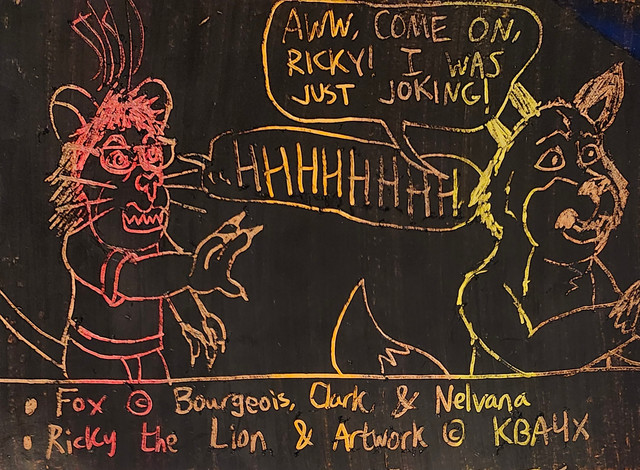 AWW, COME ON,
RICKY! I WAS
JUST JOKING!
HHHHHHHH
• Fox © Bourgeois, Clark, & Nelvana
• Ricky the Lion & Artwork © KBA4X